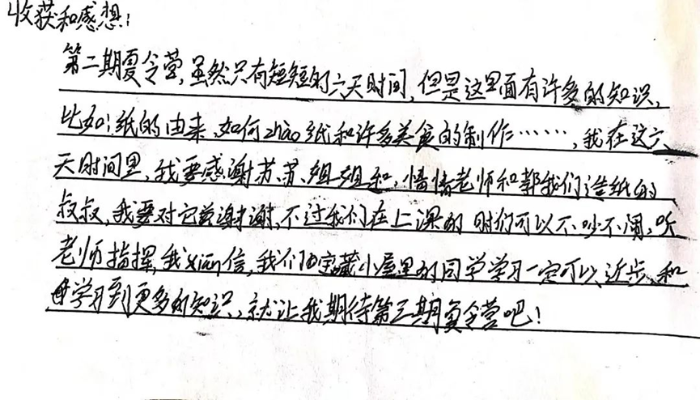 收获和感想:
第二期夏令营,虽然只有短短的六天时间,但是这里面有许多的知识,
比如:纸的由来,如何zhāo纸和许多美食的制作……,我在这六
天时间里,我要感谢苏苏姐姐和,惜惜老师和帮我们造纸的
叔叔,我要对它说谢谢,不过我们在上课的时们可以不吵不闹,听
老师指挥,我xiāng信,我们宝藏小屋里的同学学习一定可以近步,和
学习到更多的知识,就让我期待第三期夏令营吧!